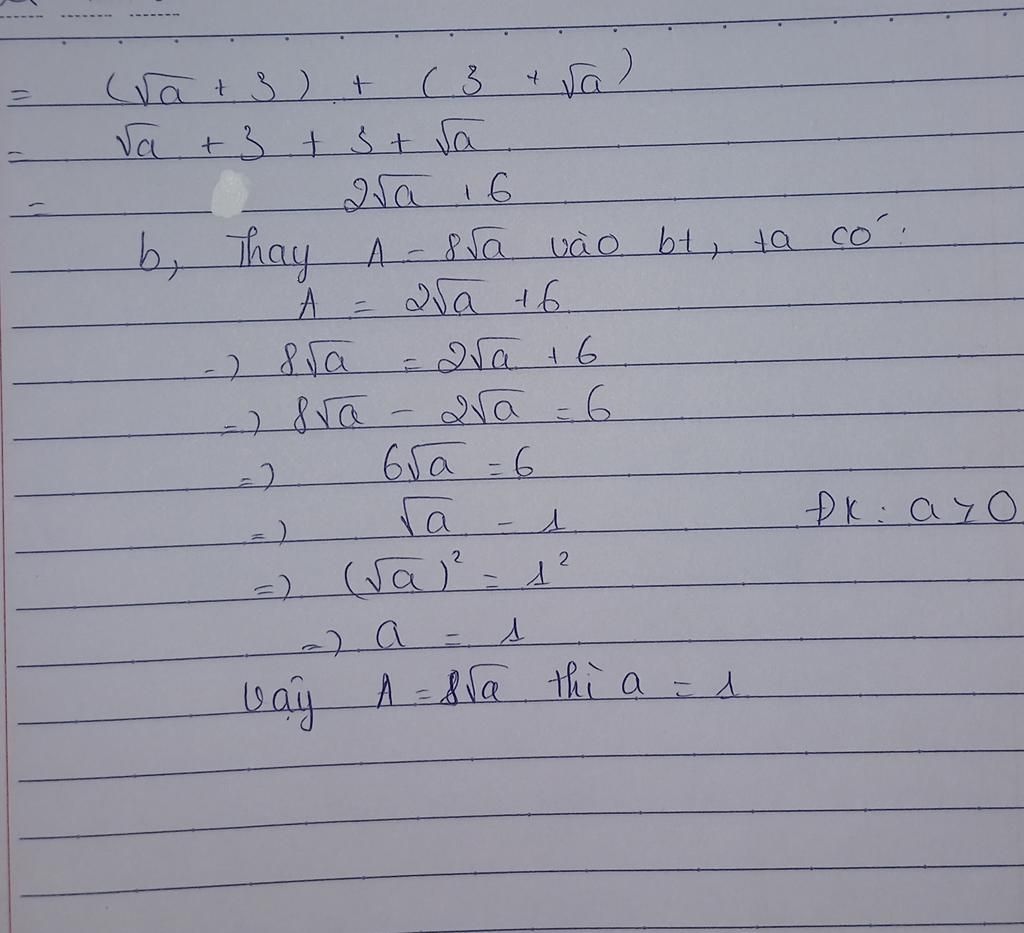 = (√a + 3) + (3 + √a)
= √a + 3 + 3 + √a
= 2√a + 6
b, Thay A = 8√a vào bt, ta có:
A = 2√a + 6
=> 8√a = 2√a + 6
=> 8√a - 2√a = 6
=> 6√a = 6
=> √a = 1 ĐK: a > 0
=> (√a)² = 1²
=> a = 1
Vậy A = 8√a thì a = 1